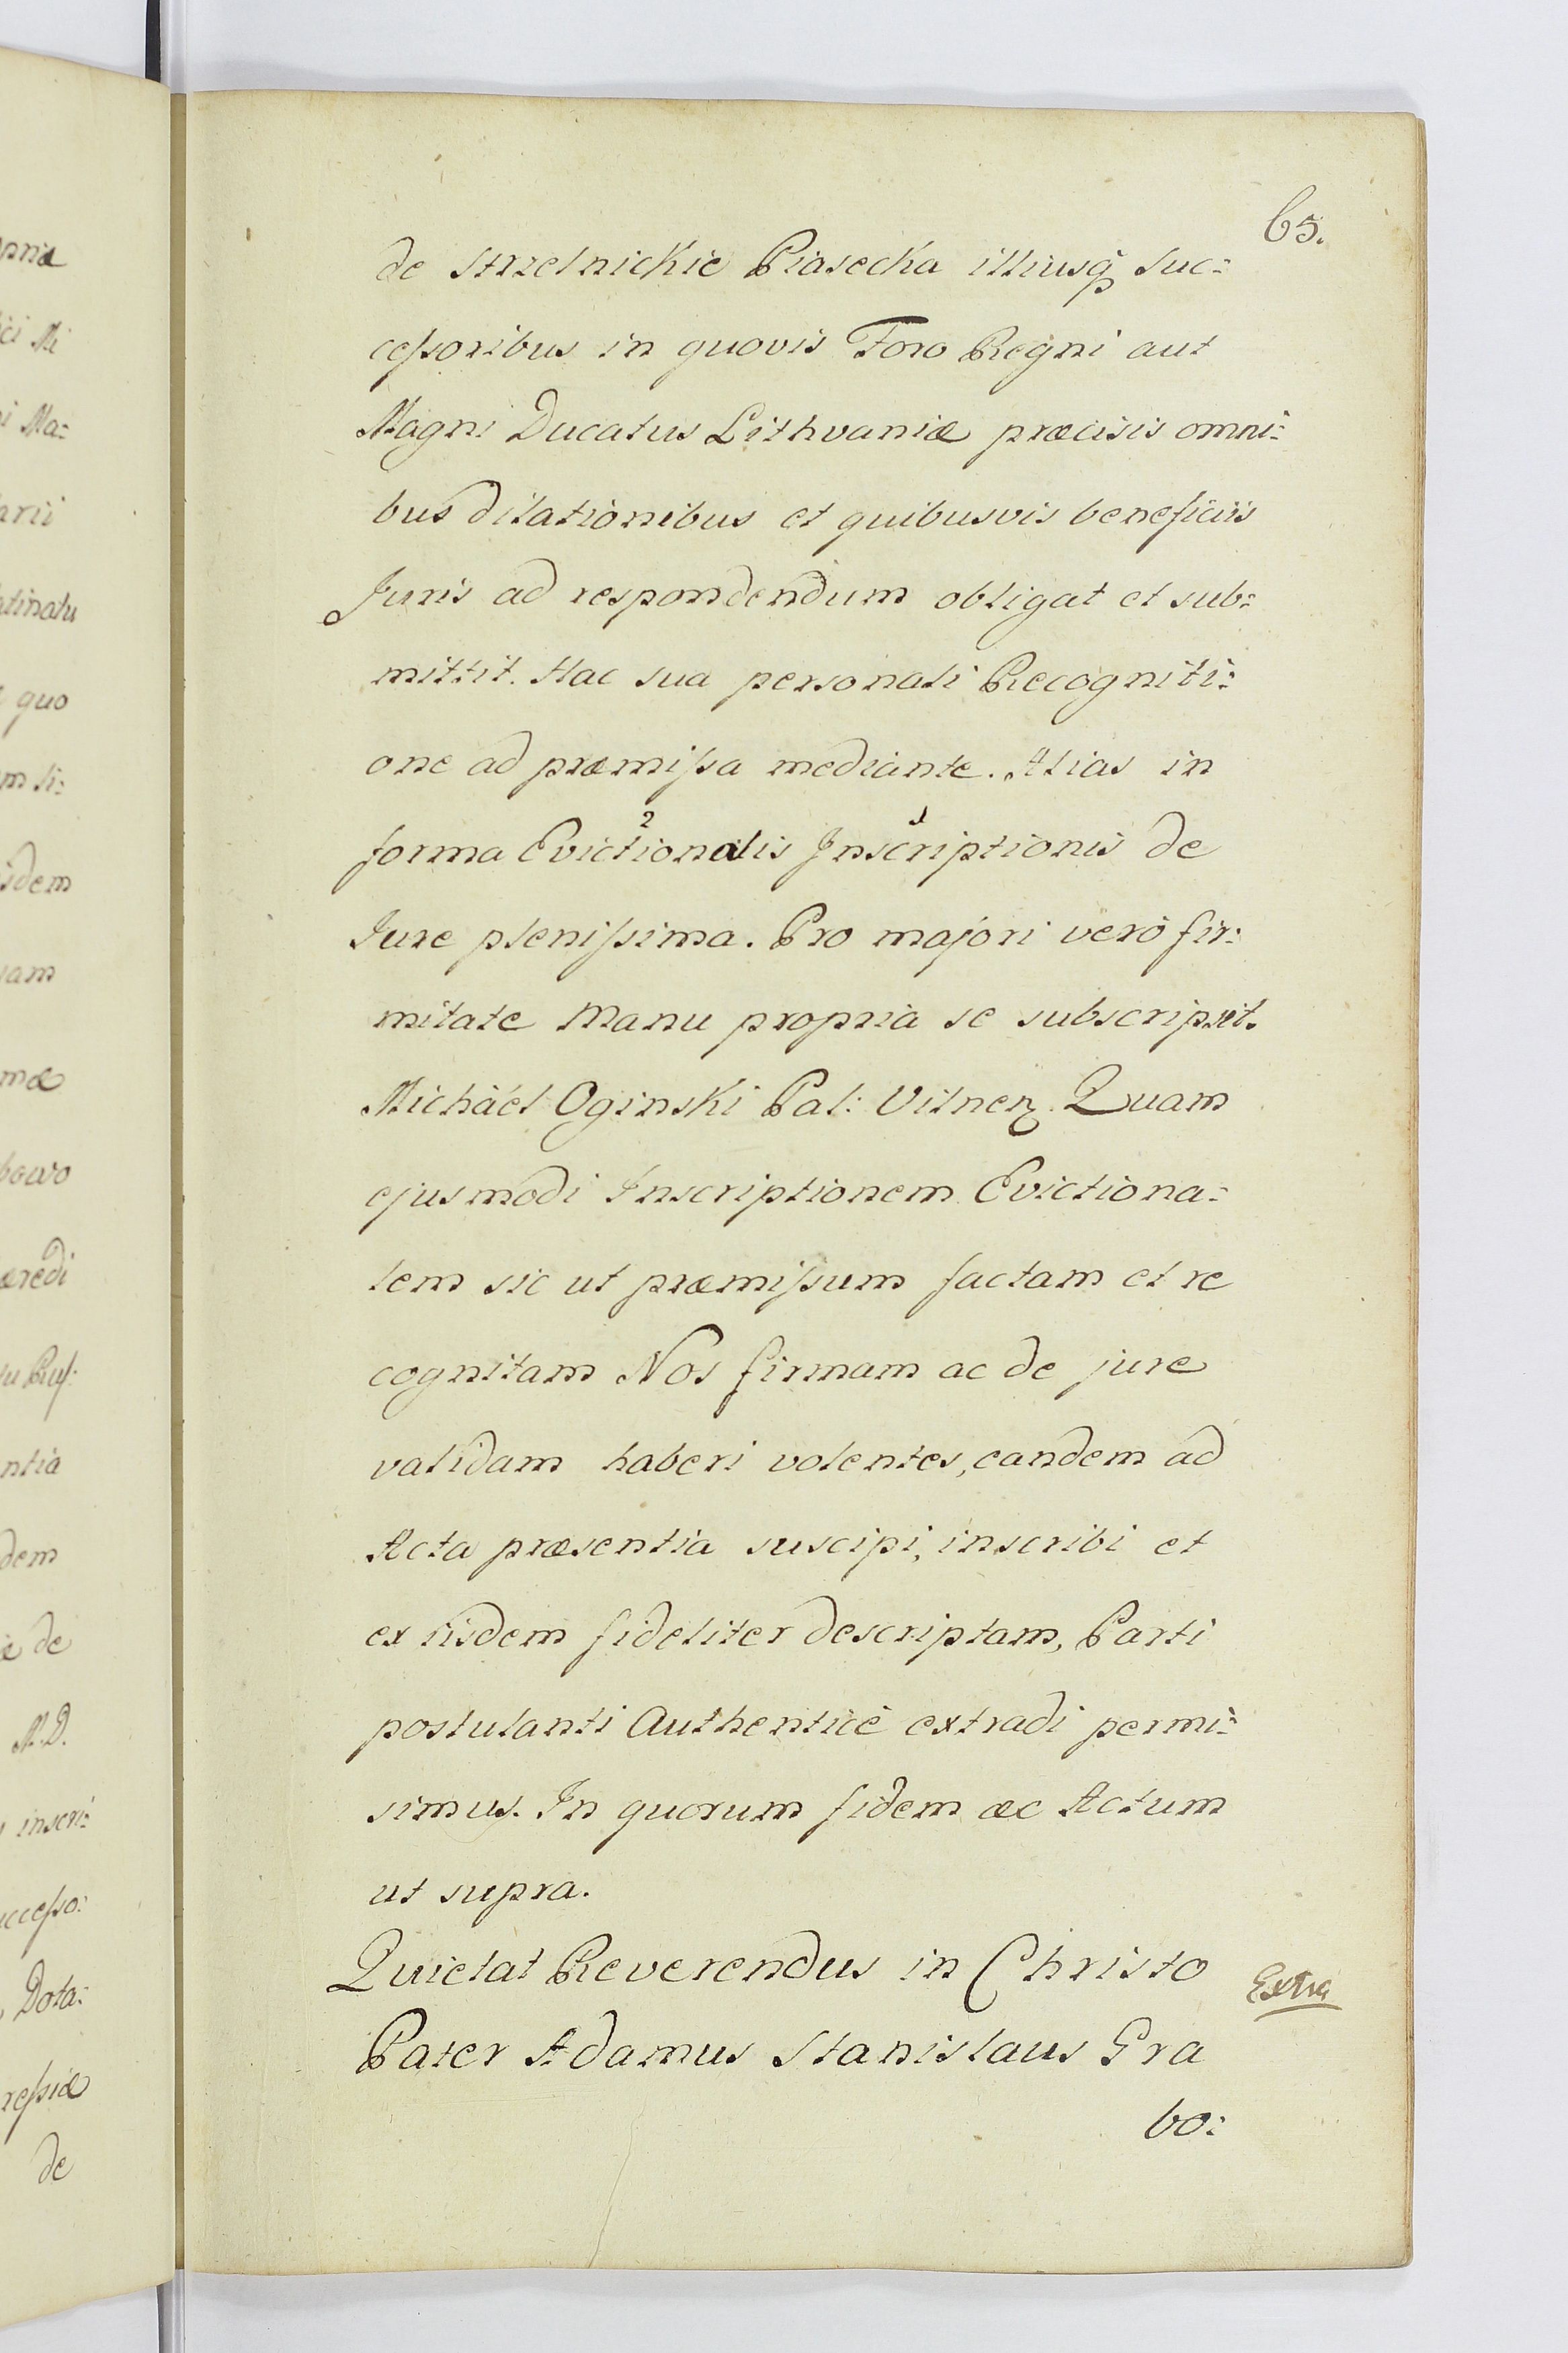 65.
de Strzelnickie Piasecka illiusq̃ Suc:
cessoribus in quovis Foro Regni aut
Magni Ducatus Lithvaniæ præcisis omni:
bus dilationibus et quibusvis beneficiis
Juris ad respondendum obligat et sub:
mittit. Hac sua personali Recogniti:
one ad præmissa mediante. Alias in
2 1
forma Evictionalis Inscriptionis de
Jure plenissima. Pro majori verò fir:
mitate Manu propria se subscripsit.
Michäel Oginski Pal: Vilnen. Quam
ejusmodi Inscriptionem Evictiona:
lem sic ut præmissum factam et re
cognitam Nos firmam ac de jure
validam haberi volentes, eandem ad
Acta præsentia suscipi, inscribi et
ex iisdem fideliter descriptam, Parti
postulanti Authenticè extradi permi:
simus. In quorum fidem ac Actum
ut supra.
Quietat Reverendus in Christo
Extra
Pater Adamus Stanislaus Gra
bo:
pria
ici Mi
i Ma:
arii
atinatu
quo
m li:
isdem
uam
mæ
bowo
æredi
ntia
dem
de
M.D.
inscri:
uccesso:
Dota:
ressiæ
de